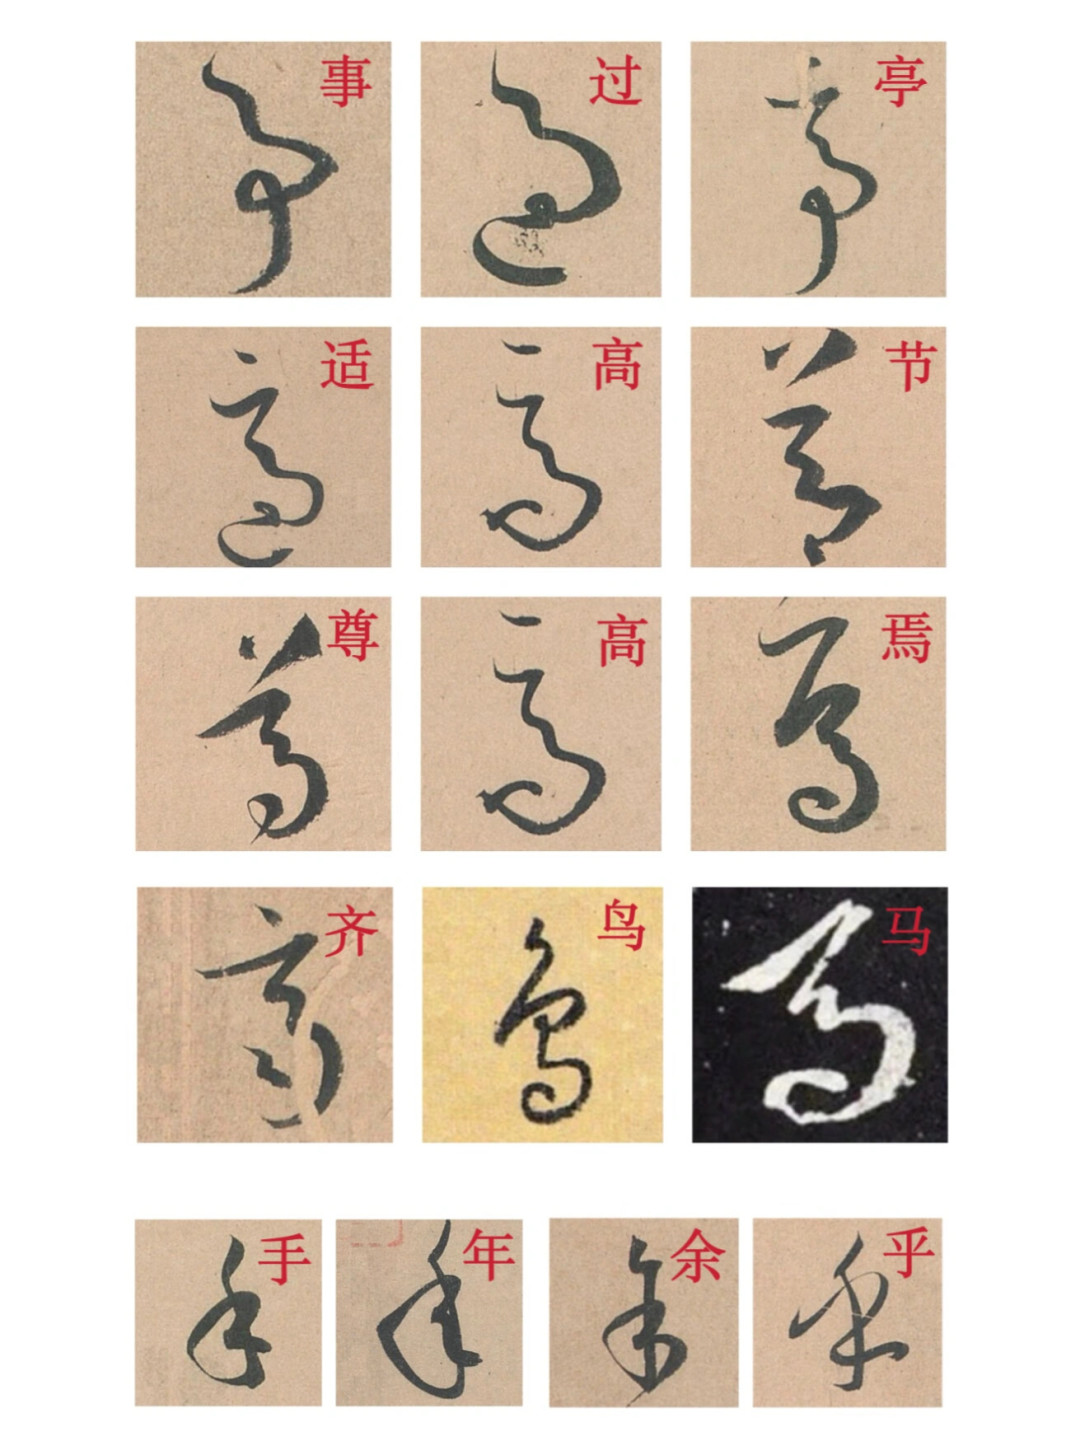 事 过 亭
适 高 节
尊 高 焉
齐 鸟 马
手 年 余 乎